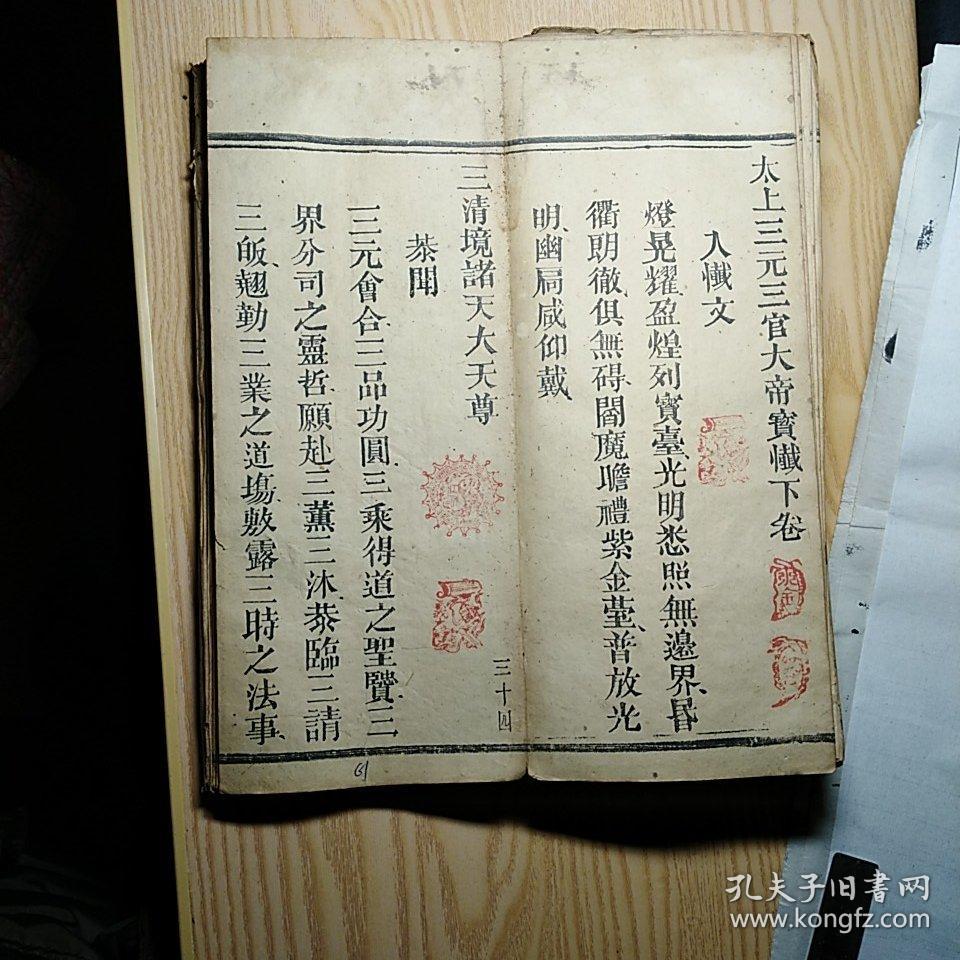 太上三元三官大帝寳懴下卷
入懴文
燈晃耀盈煌列寳臺光明悉照無邊界昬
衢朗徹俱無碍閻魔瞻禮紫金䑓普放光
明幽扃咸仰戴
三清境諸天大天尊
恭聞
三元會合三品功圓三乘得道之聖賢三
界分司之靈哲願赴三薰三沐恭臨三請
三皈翹勤三業之道塲敷露三時之法事
三十四
61
孔夫子旧书网
www.kongfz.com